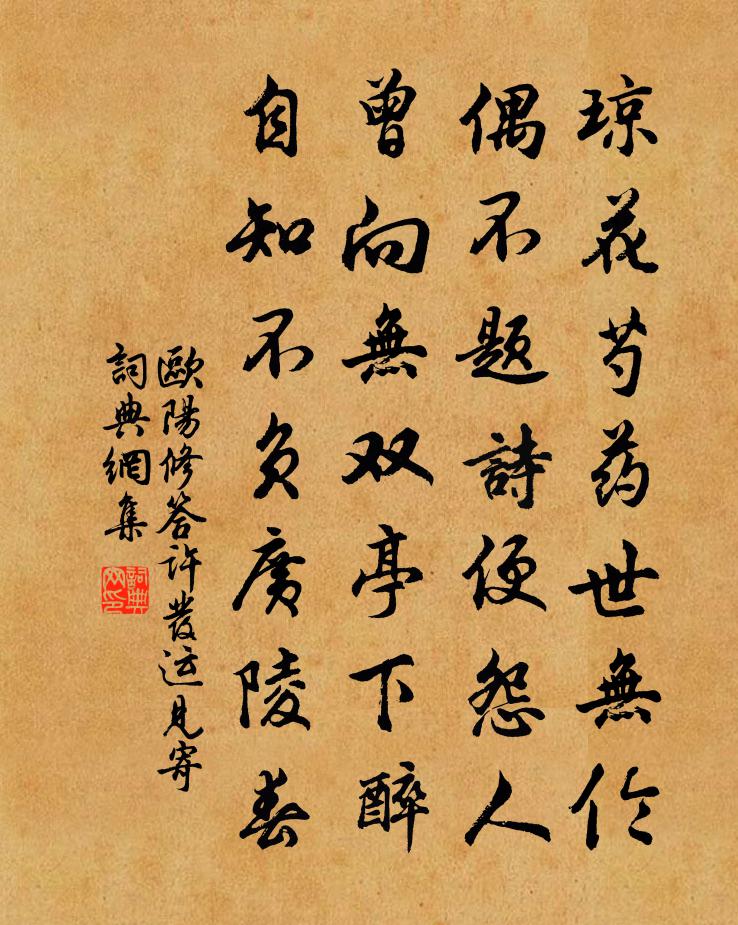 琼花芍药世無伦
偶不题詩便怨人
曾向無双亭下醉
自知不负廣陵春
歐陽修答许發运見寄
詞典網集
詞典网印